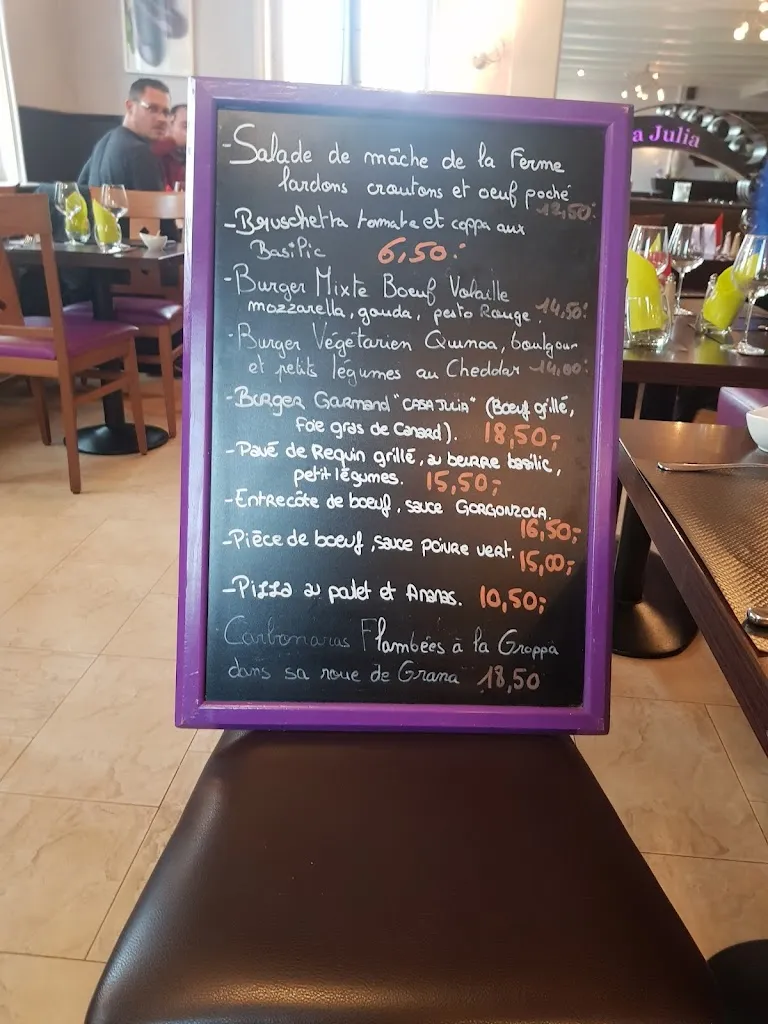 a Julia
-Salade de mâche de la Ferme
lardons croutons et oeuf poché
12,50:
-Bruschetta tomate et coppa aux
Basilic 6,50:
-Burger Mixte Boeuf Volaille
mozzarella, gouda, pesto Rouge 14,50:
-Burger Végétarien Quinoa, boulgour
et petits légumes au Cheddar 14,00:
-Burger Garmand "CASA JULIA" (Boeuf grillé,
Foie gras de Canard). 18,50;
-Pavé de Requin grillé, au beurre basilic,
petit légumes. 15,50;
-Entrecôte de boeuf, sauce GORGONZOLA.
16,50;
-Pièce de boeuf, sauce poivre vert. 15,00;
-Pizza au poulet et Ananas. 10,50;
Carbonaras Flambées à la Groppa
dans sa roue de Grana 18,50